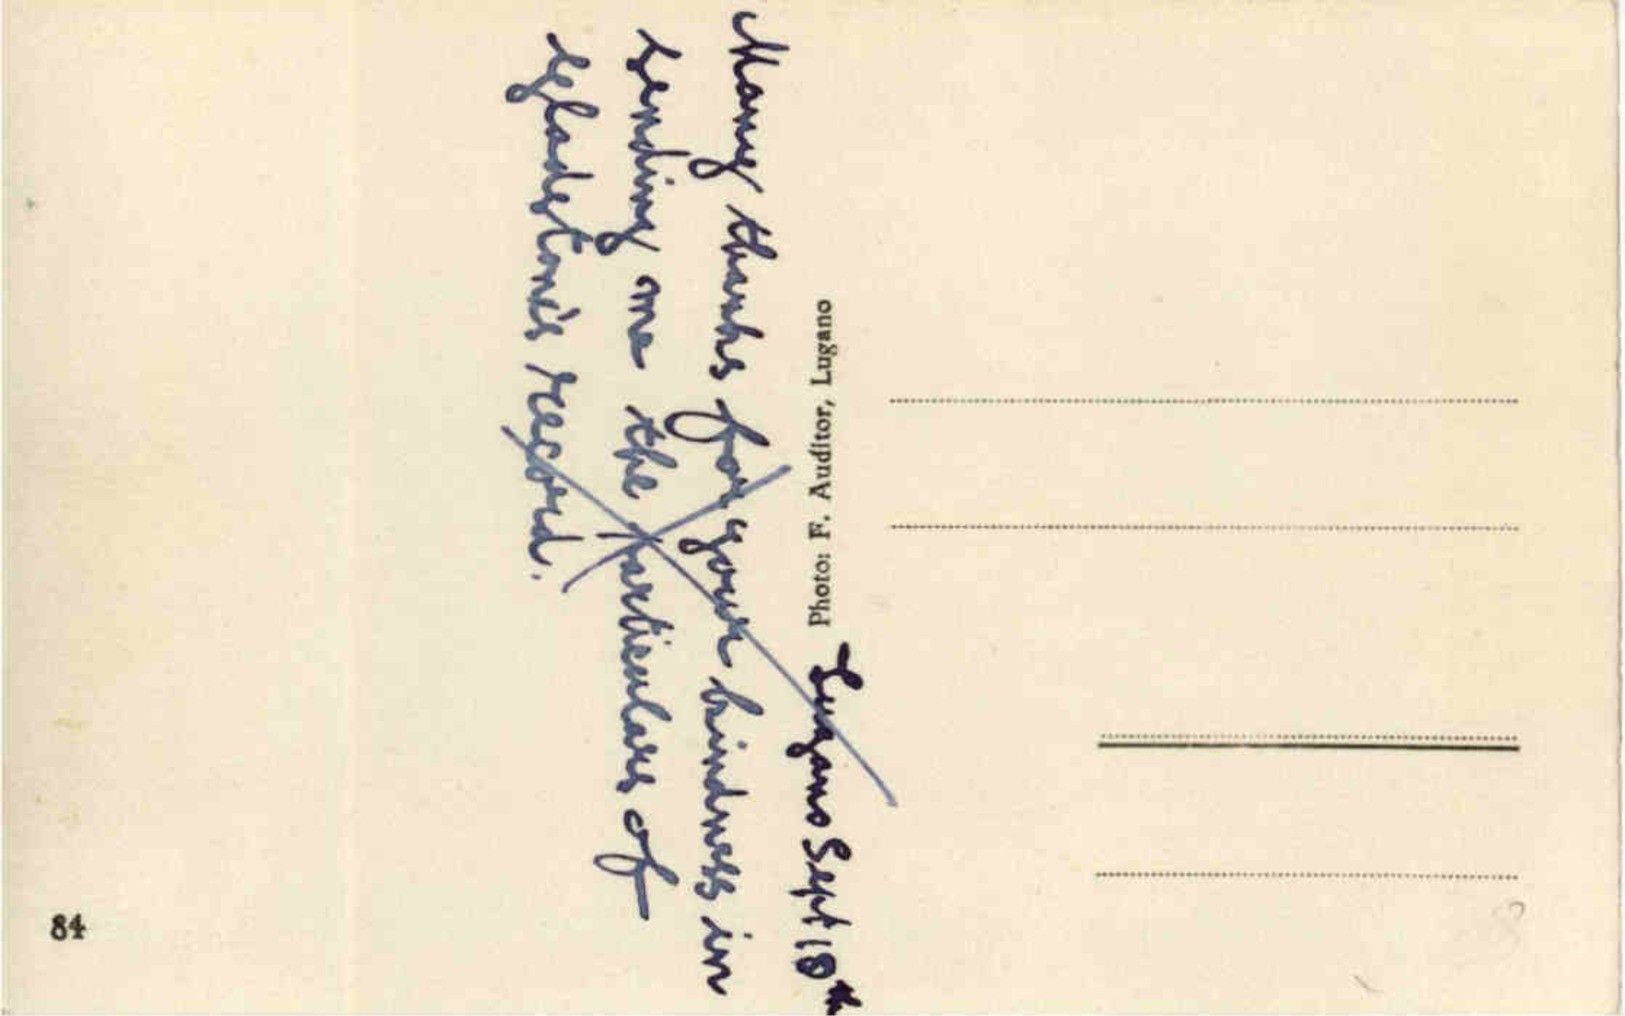 Lugano Sept 18th
Many thanks for your kindness in
sending me the particulars of
Gladstone's record.
Photo: F. Auditor, Lugano
84